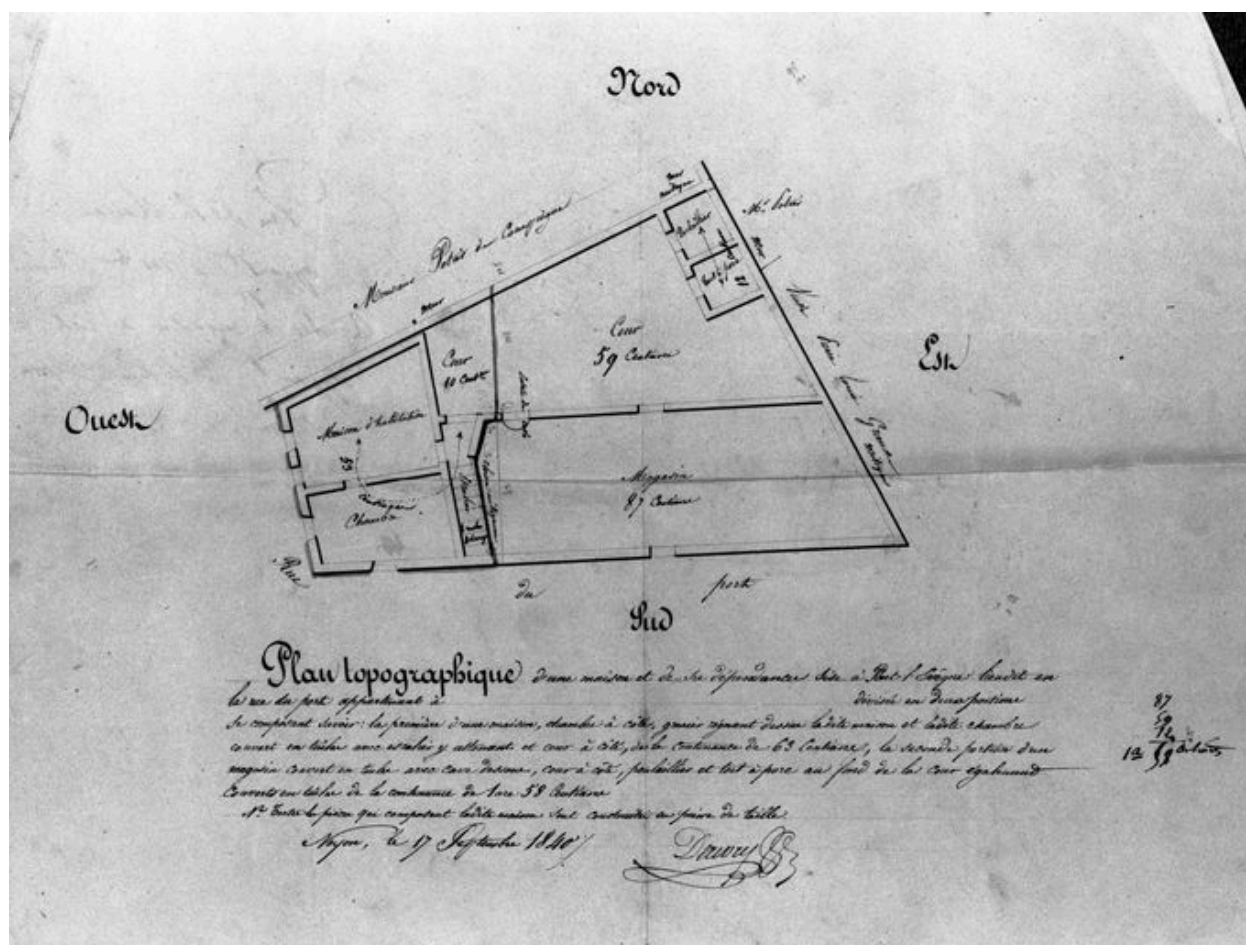 Nord
Mur
mitoyen
Monsieur Potais de Compiègne
Mur
Poulailler
Toit à porc
12
Mr. Potais
Mur
Cour
59 Centiare
Cour
10 Cent.
Est
Ouest
Maison d'habitation
53
Chambre
Magasin
87 Centiare
mitoyen
Rue du port
Sud
Plan topographique d'une maison et de ses dépendances sise à Pont l'Evêque lieudit en
la rue du port appartenant à divisé en deux portions
se composant savoir: la première d'une maison, chambre à côté, grenier régnant dessus ladite maison et ladite chambre
couvert en tuiles avec escalier y attenant et cour à côté, de la contenance de 63 Centiares, la seconde portion d'un
magasin couvert en tuile avec cave dessous, cour à côté, poulailler et toit à porc au fond de la cour également
Couverts en tuiles de la contenance de 1 are 58 Centiare
Nta. Toutes les pièces qui composent ladite maison sont construites en pierre de taille
Noyon, le 17 Septembre 1840
87
59
12
1a 58 Centiares